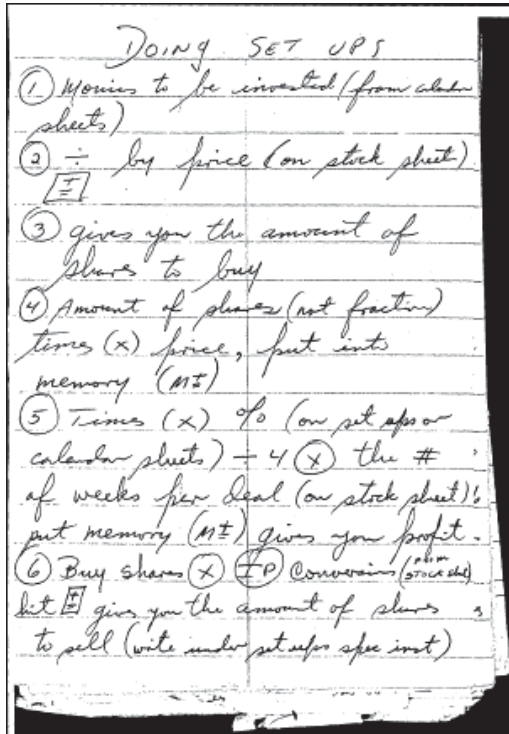 DOING SET UPS
① Monies to be invested (from calendar
sheets)
② ÷ by price (on stock sheet)
[±=]
③ gives you the amount of
shares to buy
④ Amount of shares (not fraction)
times (x) price, put into
memory (M±)
⑤ Times (x) % (on set ups or
calandar sheets) ÷ 4 ⓧ the #
of weeks per deal (on stock sheet)
put memory (M±) gives you profit.
⑥ Buy shares ⓧ ⒾⓅ Conversions (FROM
STOCK sheet)
hit [±=] gives you the amount of shares
to sell (write under set ups spec inst)